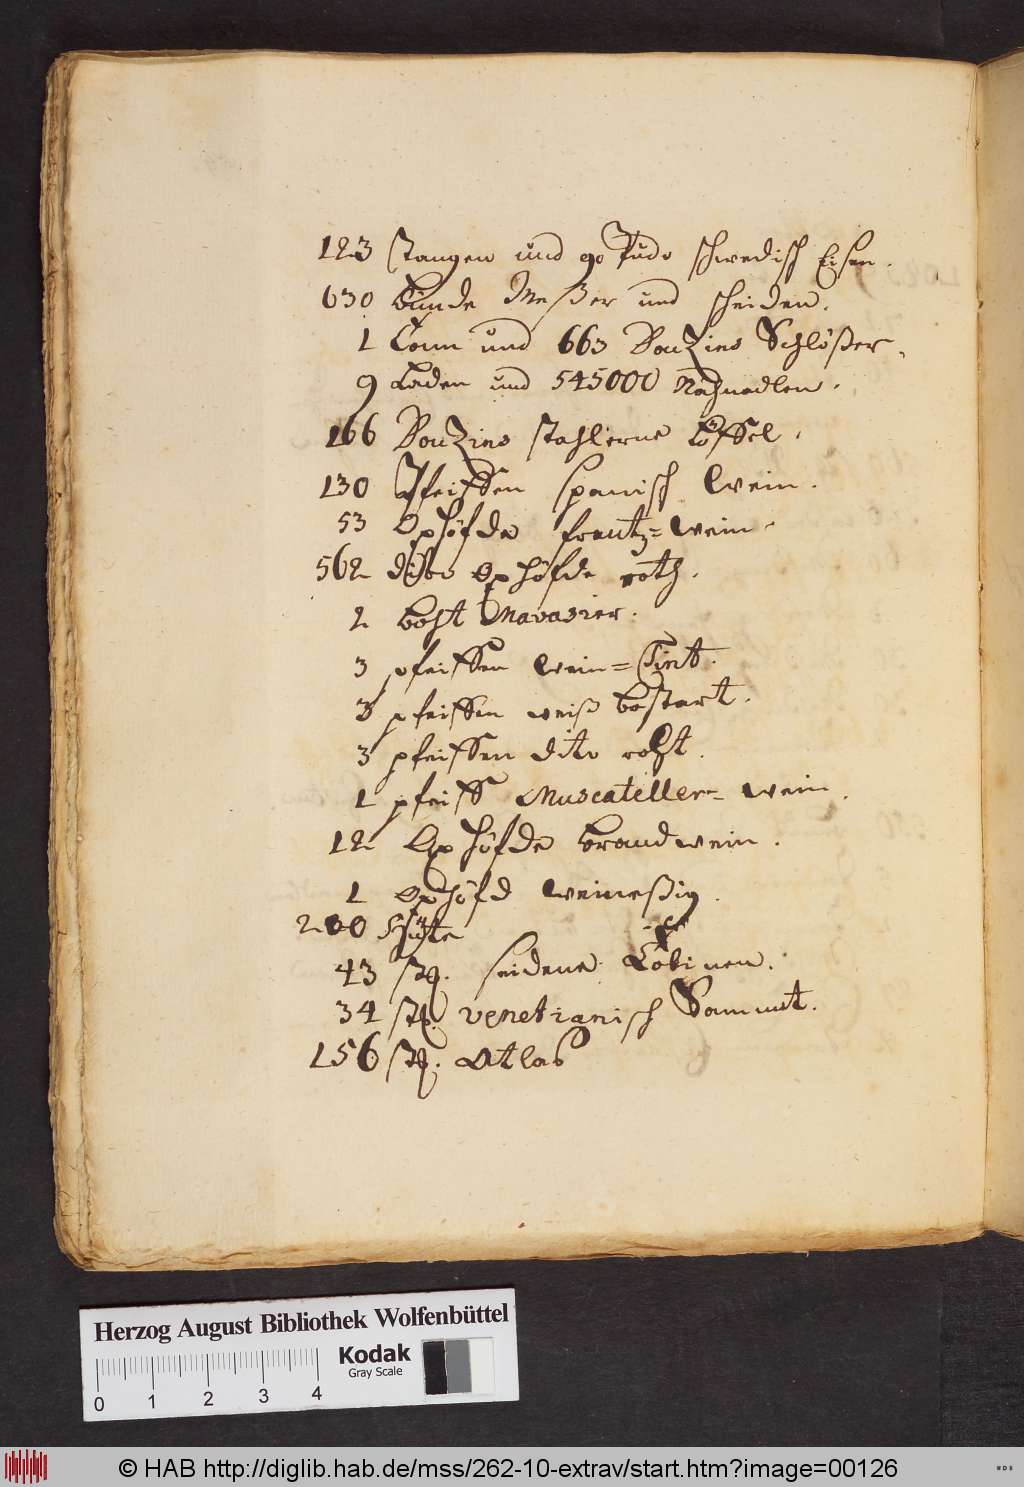 123 Stangen und 90 schwedisch Eisen.
630 Bunde Meßer und scheiden.
1 Tonn und 663 Douzins Schlößer,
9 Laden und 545000 Nähnadlen.
166 Douzins stahlerne Löffel,
130 Pfeiffen spanisch Wein.
53 Oxhöfde frantz=wein
562 dito Oxhöfde roth.
2 boht
3 pfeiffen wein=Tint.
3 pfeiffen weiß bastart.
3 pfeiffen dito roht.
1 pfeiff Muscateller= wein.
12 Oxhöfde brandwein.
1 Oxhöfd weineßig.
200 Hüte
43 stk. seidene
34 stk. venetianisch Sammt.
156 stk. Atlas
Herzog August Bibliothek Wolfenbüttel
Kodak
Gray Scale
0 1 2 3 4
© HAB http://diglib.hab.de/mss/262-10-extrav/start.htm?image=00126